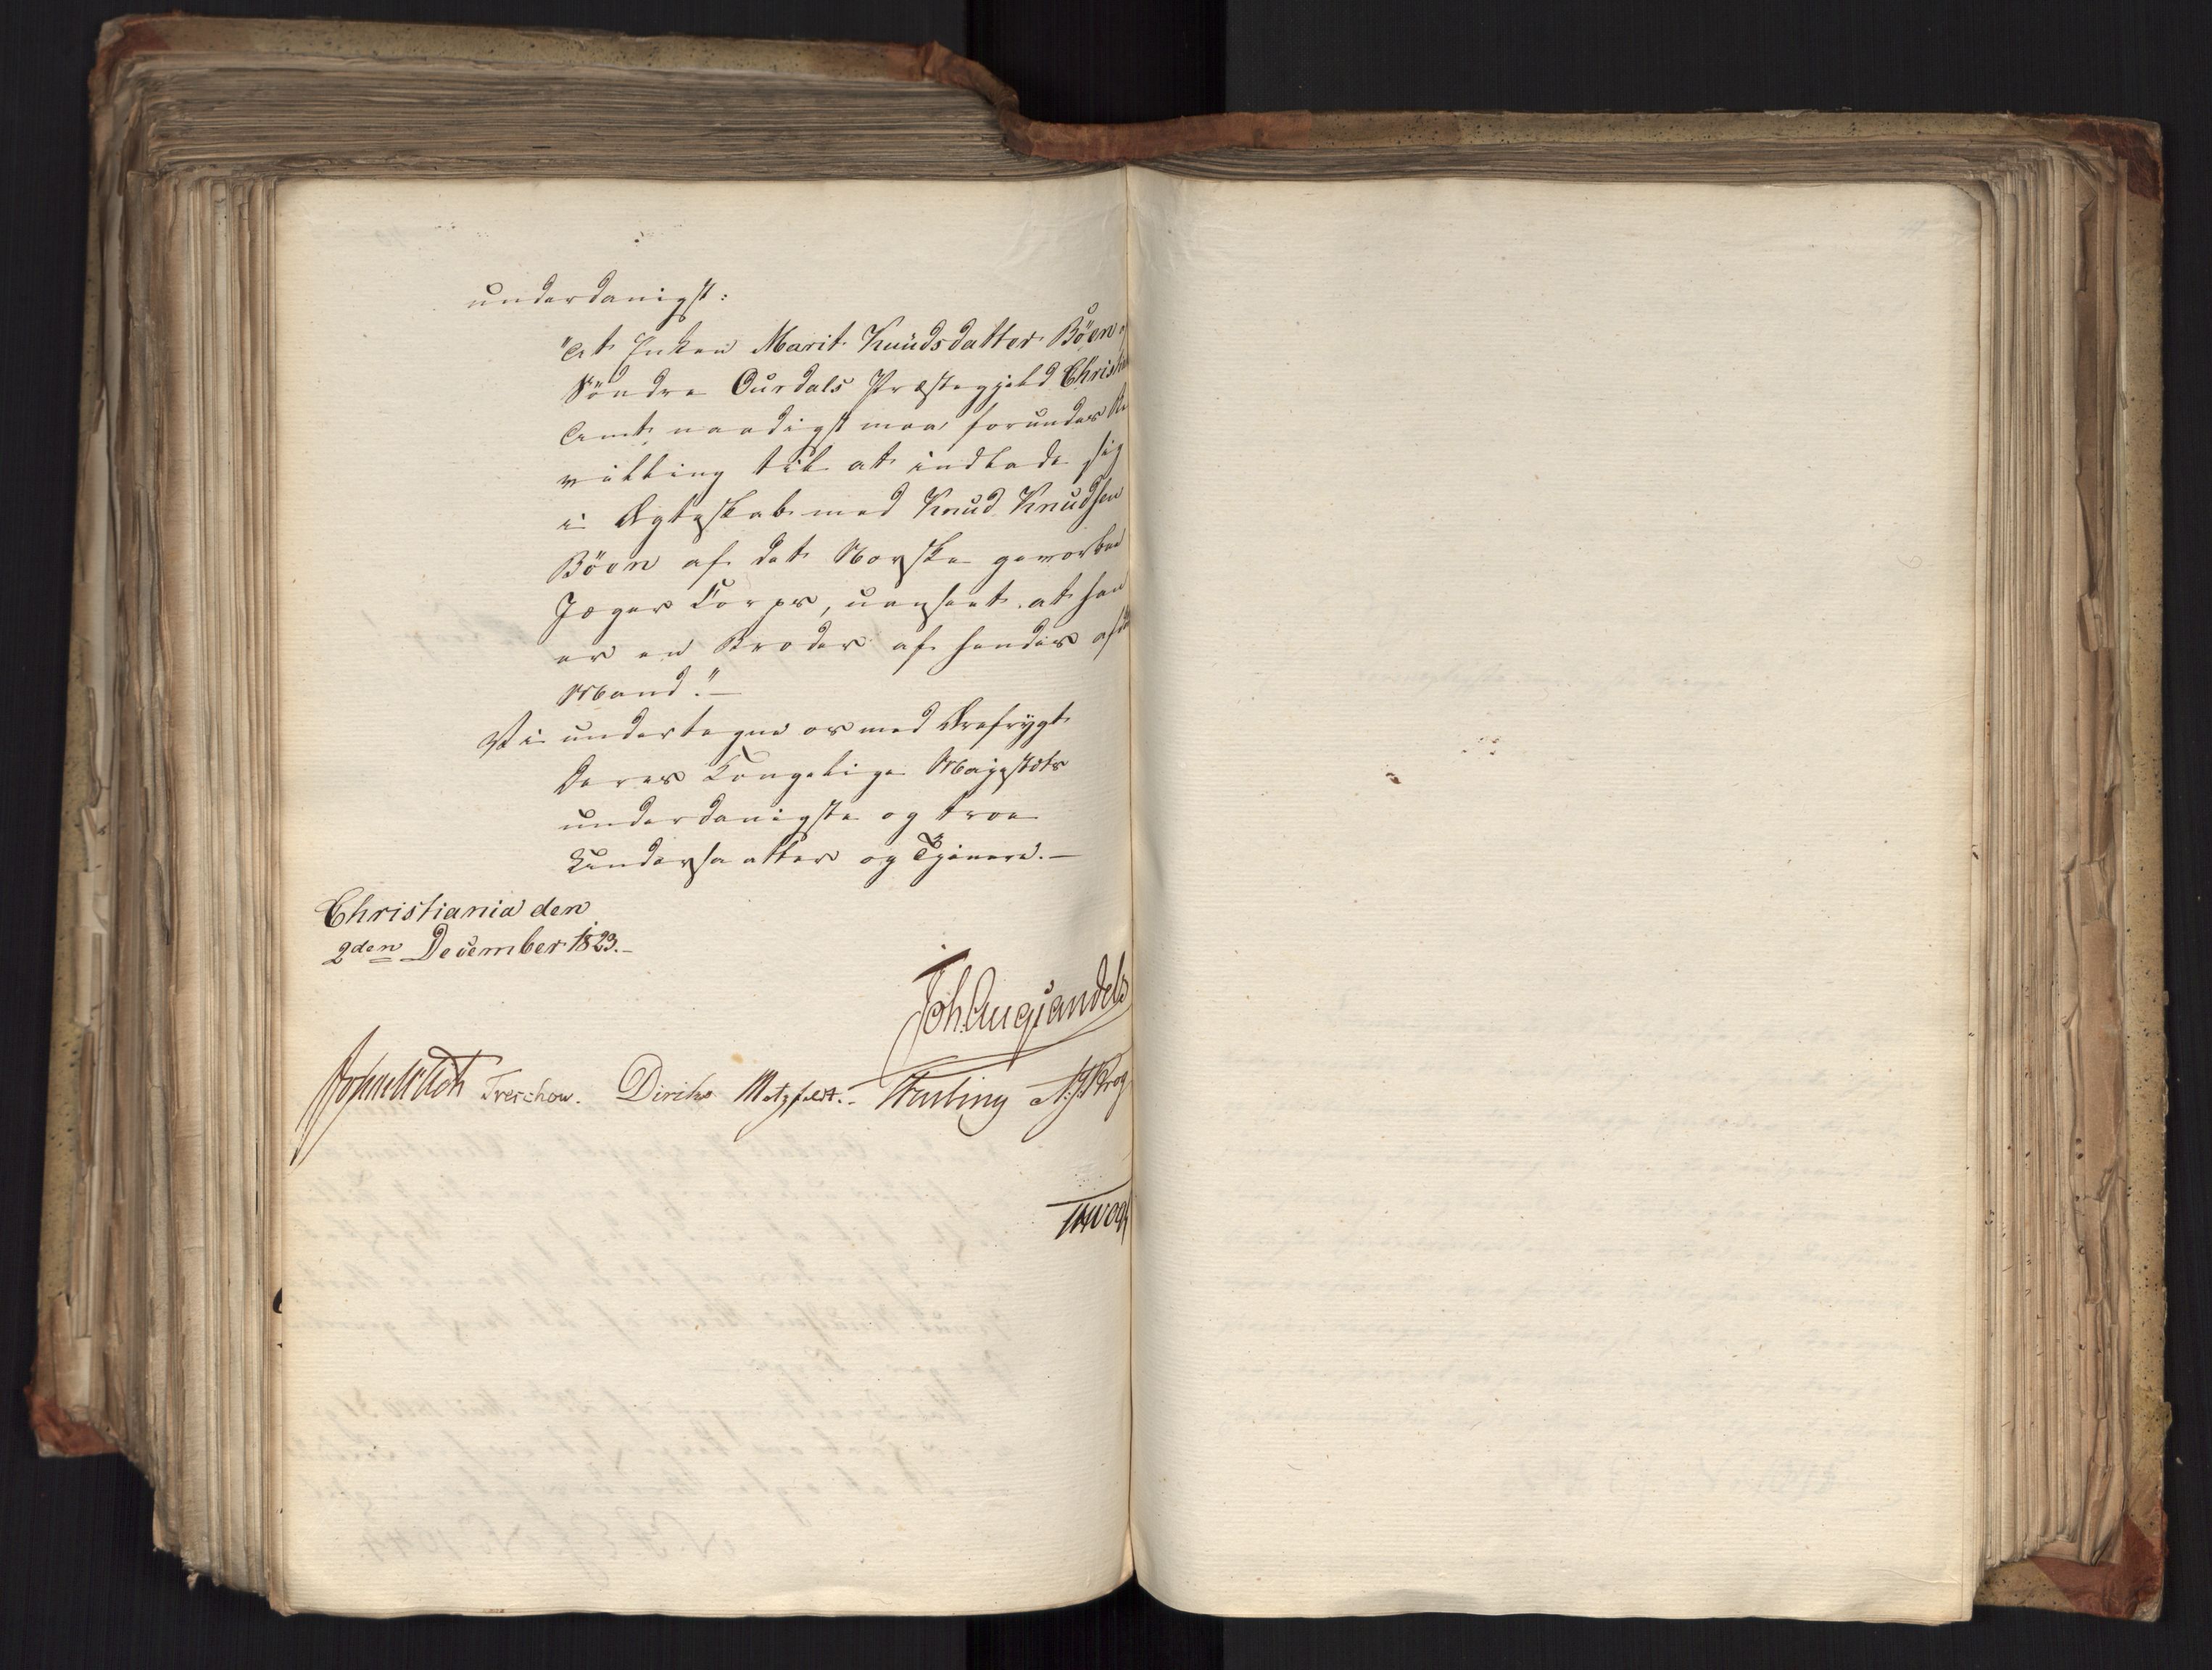 underdanigst:
"At Enken Marit Knudsdatter Böen
Söndre Ourdals Præstegjeld Christi
Amt, naadigst maa forundes Be
villing til at indlade sig
i Ægteskab med Knud Knudsen
Böen af det Norske gevorbne
Jæger Corps, uanseet at han
er en Broder af hendes afd
Mand."—
Vi undertegne os med Ærefrygt
Deres Kongelige Majestæts
underdanigste og troe
Undersaatter og Tjenere.—
Christiania den
2den December 1823.—
Joh. Aug. Sandels
Treschow. Diriks Motzfeldt. Fasting